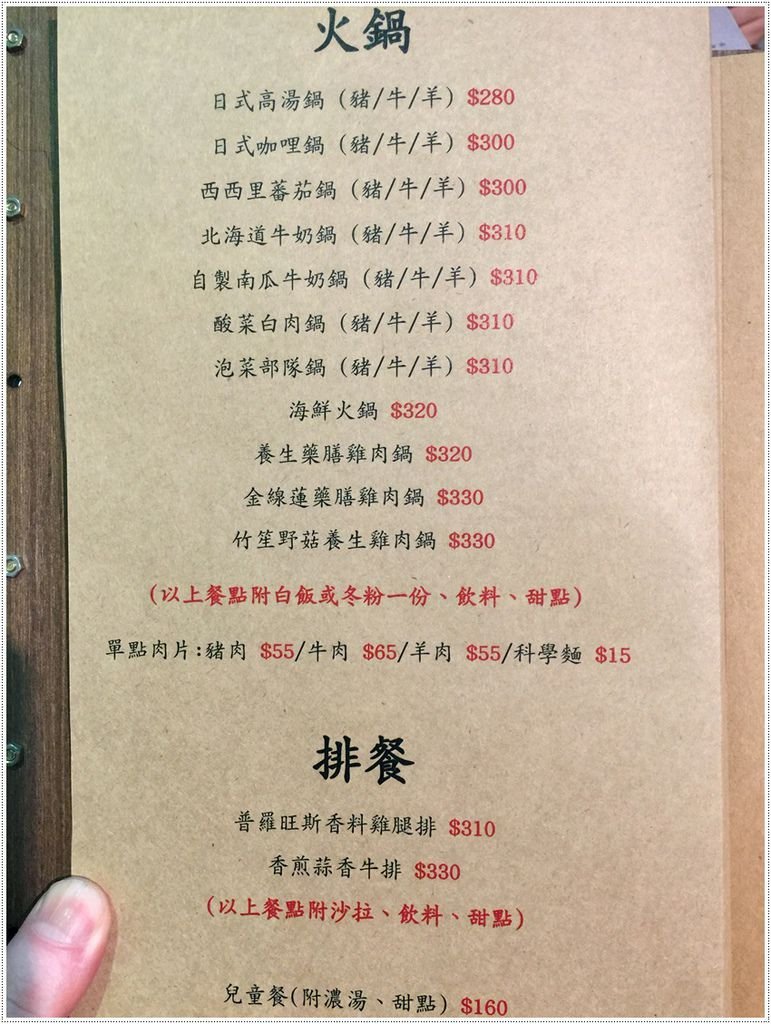 火鍋
日式高湯鍋 (豬/牛/羊) $280
日式咖哩鍋 (豬/牛/羊) $300
西西里蕃茄鍋 (豬/牛/羊) $300
北海道牛奶鍋 (豬/牛/羊) $310
自製南瓜牛奶鍋 (豬/牛/羊) $310
酸菜白肉鍋 (豬/牛/羊) $310
泡菜部隊鍋 (豬/牛/羊) $310
海鮮火鍋 $320
養生藥膳雞肉鍋 $320
金線蓮藥膳雞肉鍋 $330
竹笙野菇養生雞肉鍋 $330
(以上餐點附白飯或冬粉一份、飲料、甜點)
單點肉片:豬肉 $55/牛肉 $65/羊肉 $55/科學麵 $15
排餐
普羅旺斯香料雞腿排 $310
香煎蒜香牛排 $330
(以上餐點附沙拉、飲料、甜點)
兒童餐(附濃湯、甜點) $160